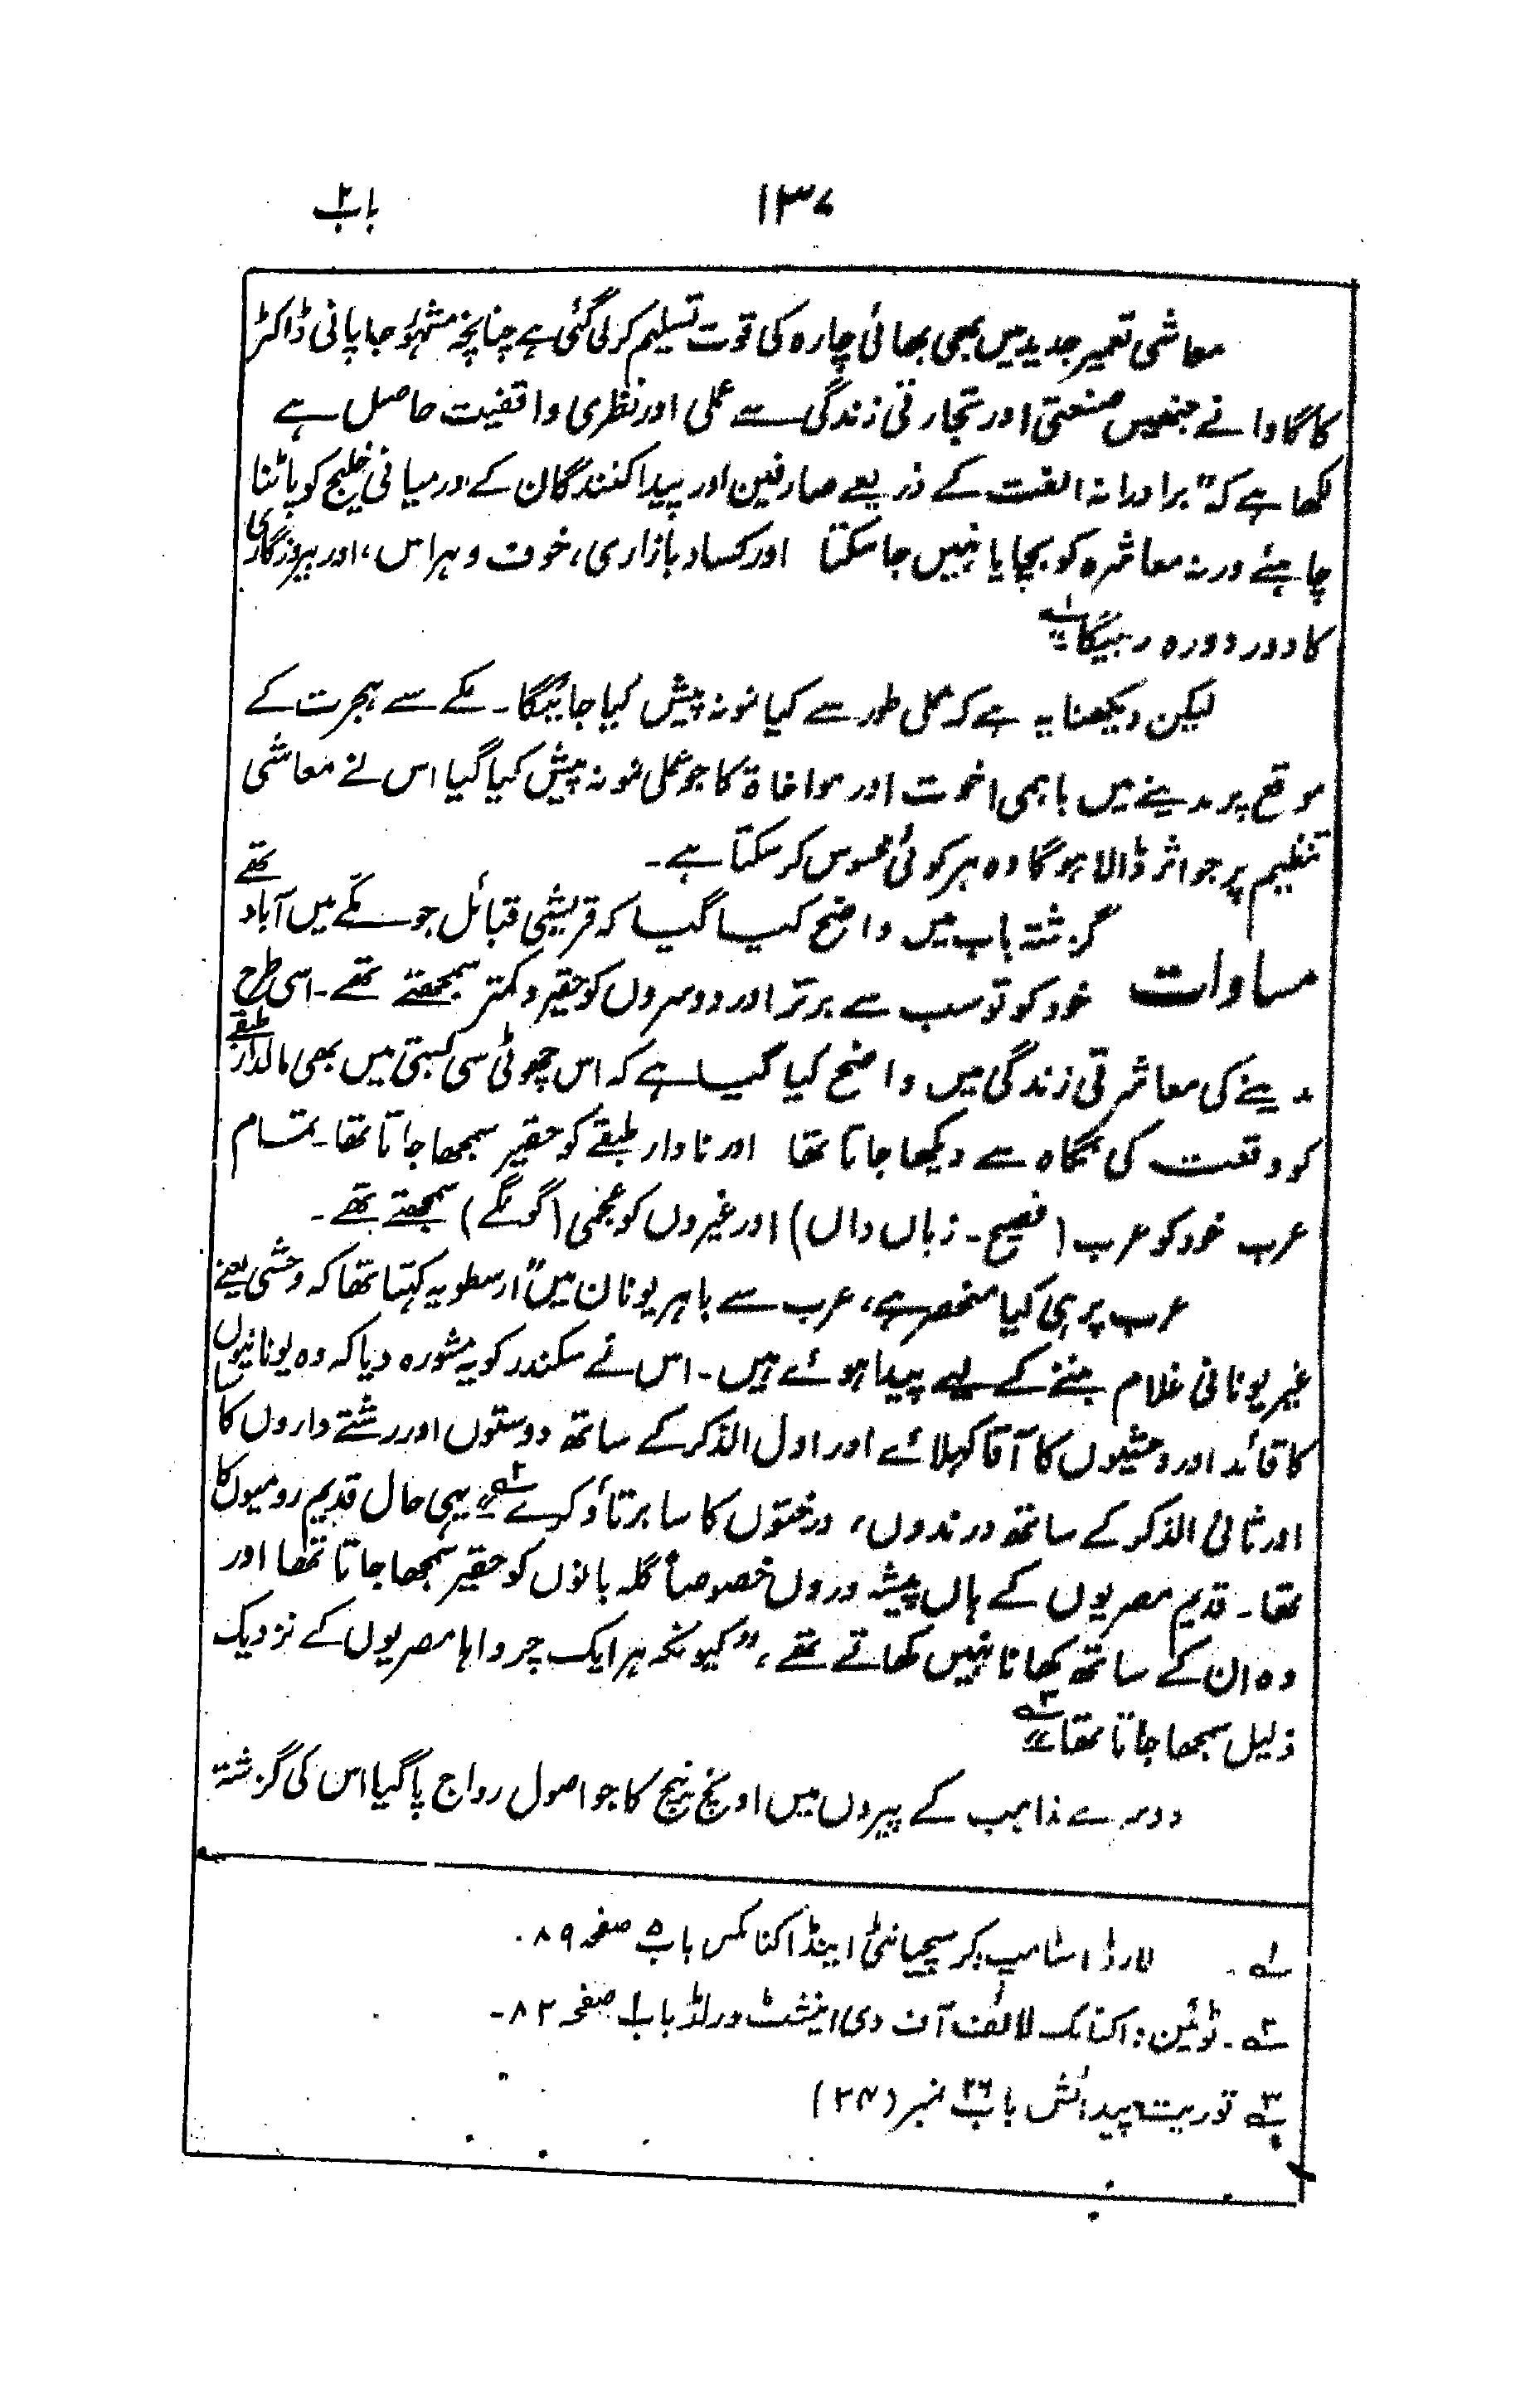 ۱۳۷ باب۲
معاشی تعمیر جدید میں بھی بھائی چارہ کی قوت تسلیم کر لی گئی ہے چنانچہ مشہور جاپانی ڈاکٹر
کاگاوا نے جنھیں صنعتی اور تجارتی زندگی سے عملی اور نظری واقفیت حاصل ہے
لکھا ہے کہ "برادرانہ الفت کے ذریعے صارفین اور پیدا کنندگان کے درمیانی خلیج کو پاٹنا
چاہئے ورنہ معاشرہ کو بچایا نہیں جا سکتا اور کساد بازاری، خوف و ہراس، اور بیروزگاری
کا دور دورہ رہیگا"۱؎
لیکن دیکھنا یہ ہے کہ عملی طور سے کیا نمونہ پیش کیا جائیگا۔ مکے سے ہجرت کے
موقع پر مدینے میں باہمی اخوت اور مواخاۃ کا جو عملی نمونہ پیش کیا گیا اس نے معاشی
تنظیم پر جو اثر ڈالا ہوگا وہ ہر کوئی محسوس کر سکتا ہے۔
مساوات گزشتہ باب میں واضح کیا گیا کہ قریشی قبائل جو مکے میں آباد تھے
خود کو تو سب سے برتر اور دوسروں کو حقیر و کمتر سمجھتے تھے۔ اسی طرح
مدینے کی معاشرتی زندگی میں واضح کیا گیا ہے کہ اس چھوٹی سی بستی میں بھی مالدار طبقے
کو وقعت کی نگاہ سے دیکھا جاتا تھا اور نادار طبقے کو حقیر سمجھا جاتا تھا۔ تمام
عرب خود کو عرب (فصیح۔ زباں داں) اور غیروں کو عجمی (گونگے) سمجھتے تھے۔
عرب پر ہی کیا منحصر ہے، عرب سے باہر یونان میں "ارسطو یہ کہتا تھا کہ وحشی یعنے
غیر یونانی غلام بننے کے لیے پیدا ہوئے ہیں۔ اس نے سکندر کو یہ مشورہ دیا کہ وہ یونانیوں
کا قائد اور وحشیوں کا آقا کہلائے اور اول الذکر کے ساتھ دوستوں اور رشتے داروں کا سا
اور ثانی الذکر کے ساتھ درندوں، درختوں کا سا برتاؤ کرے"۲؎ یہی حال قدیم رومیوں کا
تھا۔ قدیم مصریوں کے ہاں پیشہ وروں خصوصاً گلہ بانوں کو حقیر سمجھا جاتا تھا اور
وہ ان کے ساتھ کھانا نہیں کھاتے تھے، "کیونکہ ہر ایک چرواہا مصریوں کے نزدیک
ذلیل سمجھا جاتا تھا"۳؎
دوسرے مذاہب کے پیروں میں اونچ نیچ کا جو اصول رواج پا گیا اس کی گزشتہ
۱؎۔ لارڈ اسٹامپ: کرسچیانٹی اینڈ اکنامکس باب۵ صفحہ ۸۹۔
۲؎۔ ٹوئمین: اکنامک لائف آف دی اینشنٹ ورلڈ باب۱ صفحہ ۸۲۔
۳؎ توریت پیدائش باب۴۶ نمبر (۳۴)